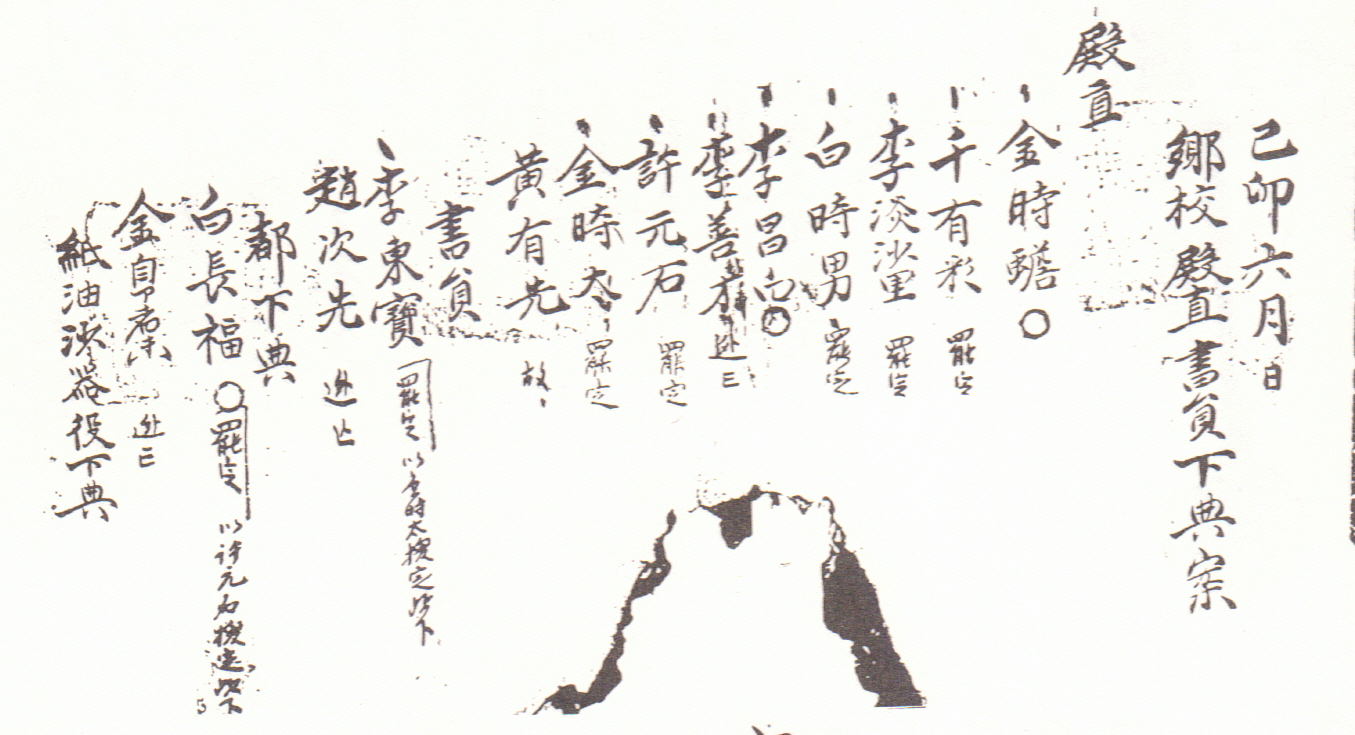 己卯六月日
鄕校殿直書員下典案
殿直
金時蟾
千有彩 罷定
李淡沙里 罷定
白時男 罷定
李昌白
李善才 逃亡
許元石 罷定
金時太 罷定
黃有先 故
書員
李東寶 罷定 以金時太換定次下
趙次先 逃亡
都下典
白長福 罷定 以許元石換定次下
金自 逃亡
紙油沙器役下典